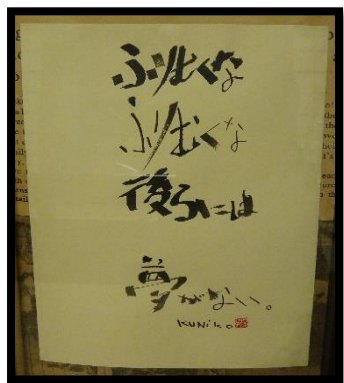 ふりむくな
ふりむくな
後ろには
夢がない。
KUNiKo